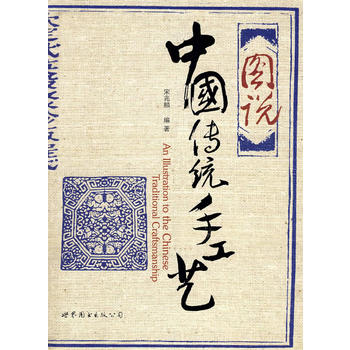 图说
中國传统手工艺
宋兆麟 编著
An Illustration to the Chinese
Traditional Craftsmanship
世界图书出版公司